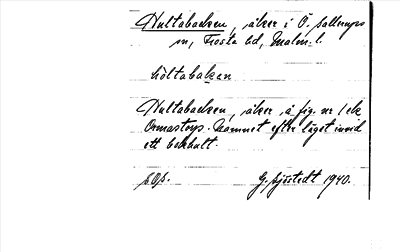 Hultabacken, åker i Ö. Sallerups
sn, Frosta hd, Malm. l.
hóltabakan
Hultabacken, åker å fig. nr 1 ek
Ormastorp. Namnet efter läget invid
ett bokhult.
G. Sjöstedt 1940.